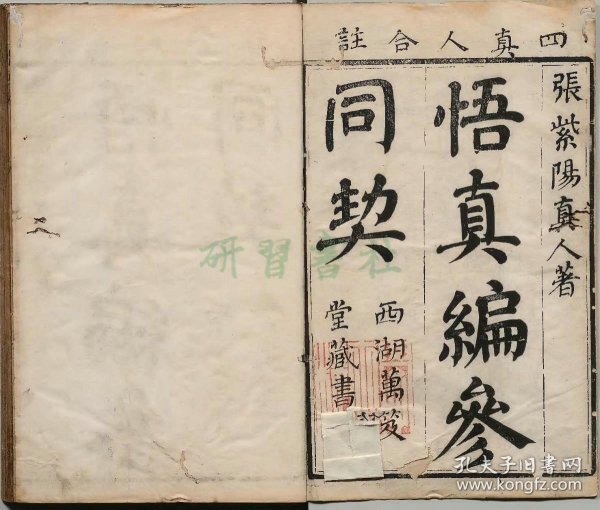 四真人合註
張紫陽真人著
悟真編參
同契
西湖萬笈
堂藏書
研習書社
孔夫子旧书网
www.kongfz.com